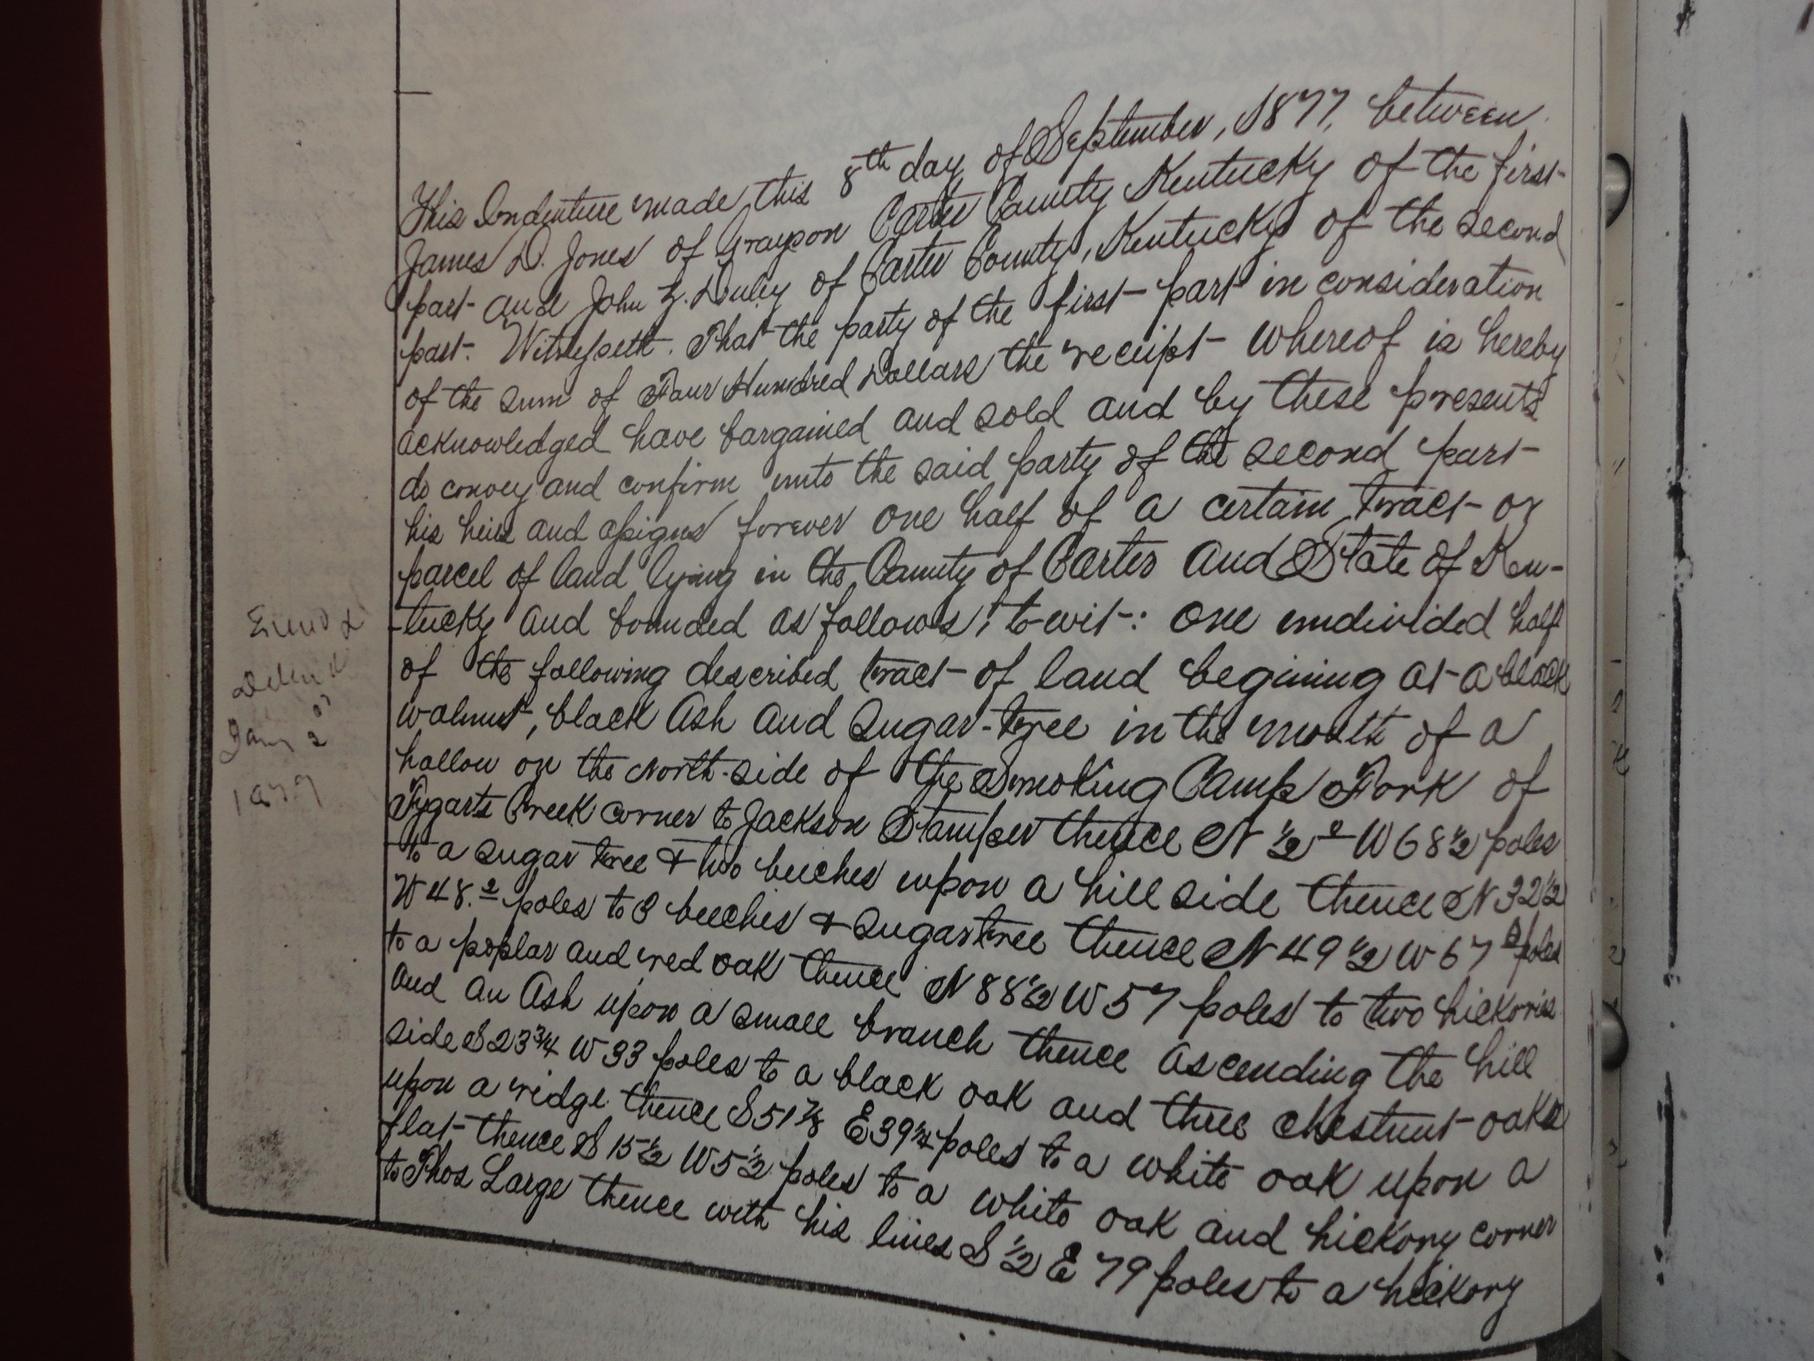 This Indenture made this 8th day of September, 1877, between
James D. Jones of Grayson Carter County Kentucky of the first
part and John Z. Duley of Carter County, Kentucky of the second
part. Witnesseth. That the party of the first part in consideration
of the sum of Four Hundred Dollars the receipt whereof is hereby
acknowledged have bargained and sold and by these presents
do convey and confirm unto the said party of the second part
his heirs and assigns forever one half of a certain tract or
parcel of land lying in the County of Carter and State of Ken-
tucky and bounded as follows; to-wit: One undivided half
of the following described tract of land begining at a black
walnut, black Ash and Sugar-tree in the mouth of a
hollow on the North-side of the Smoking Camp Fork of
Tygarts Creek corner to Jackson Stamper thence N ½° W 68½ poles
to a sugar tree & two beeches upon a hill side thence N 32½
W 48.2 poles to 3 beeches & Sugartree thence N 49½ W 67 poles
to a poplar and red oak thence N 88½ W 57 poles to two hickories
and an Ash upon a small branch thence ascending the hill
side S 23¾ W 33 poles to a black oak and three chestnut oaks
upon a ridge thence S 51⅞ E 39¼ poles to a white oak upon a
flat thence S 15½ W 5½ poles to a white oak and hickory corner
to Thos Large thence with his lines S ½ E 79 poles to a hickory
Jany 2
1879